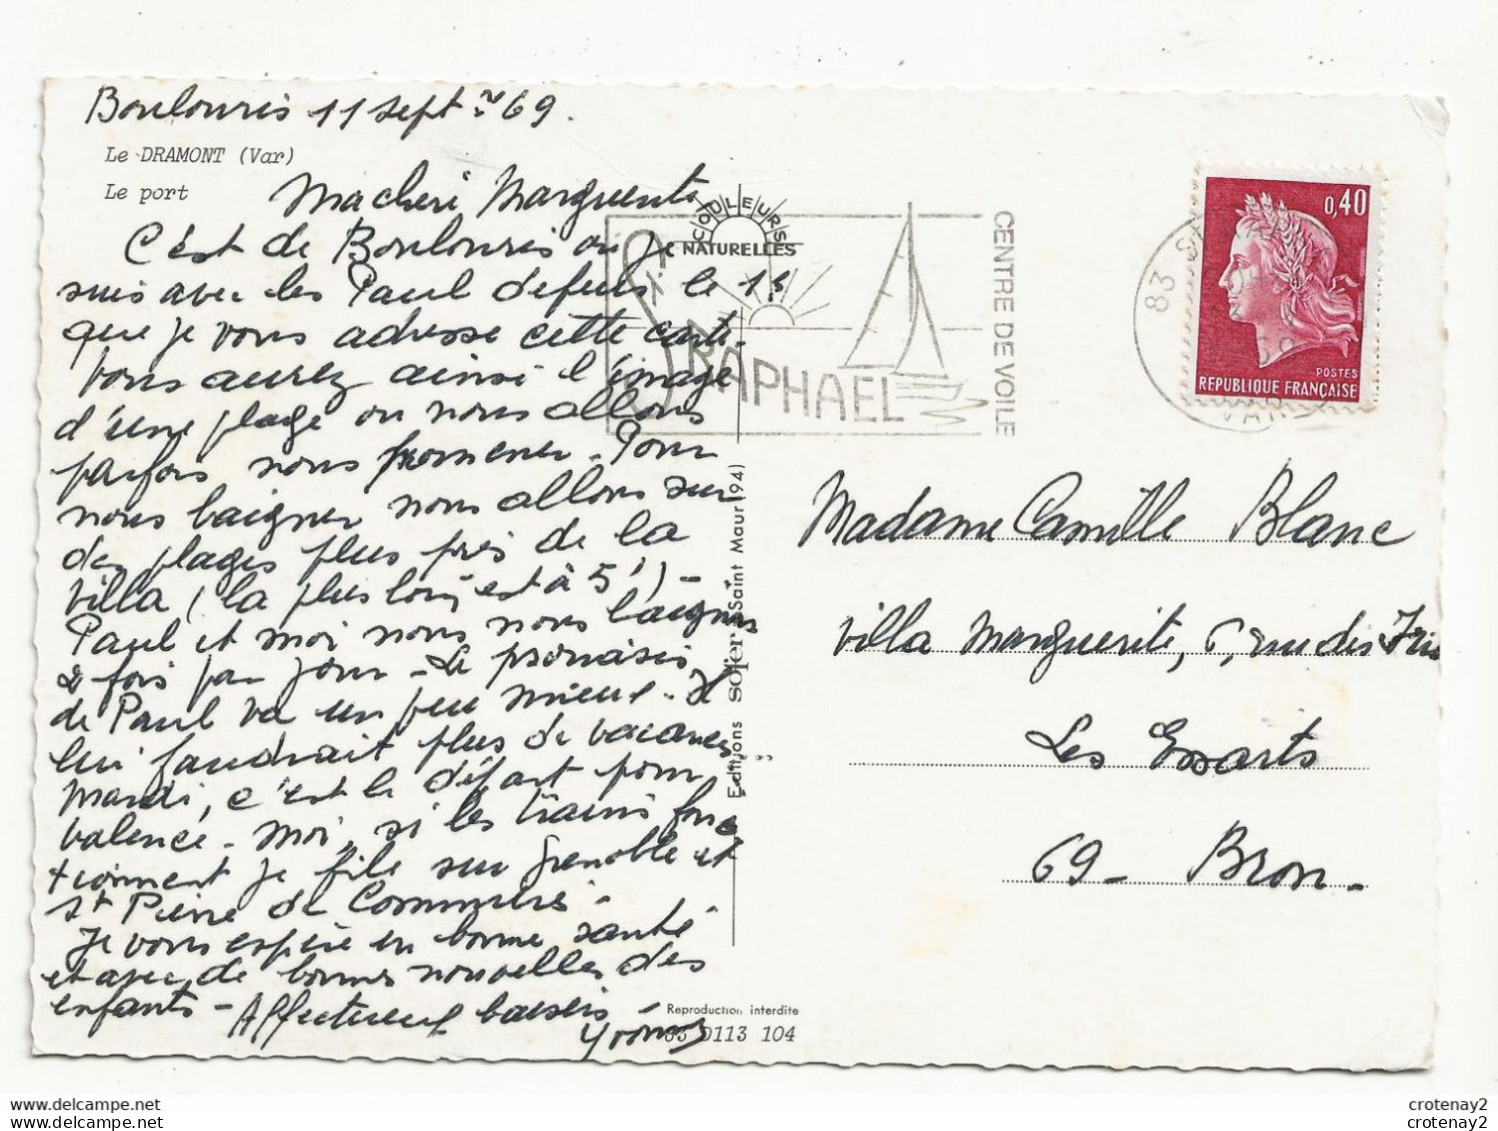 Boulouris 11 Sept 69.
Le DRAMONT (Var)
Le port
Ma chère Marguerite
C'est de Boulouris où je
suis avec les Paul depuis le 1er
que je vous adresse cette carte.
Vous aurez ainsi l'image
d'une plage où nous allons
parfois nous promener. Pour
nous baigner nous allons sur
des plages plus près de la
villa (la plus loin est à 5') -
Paul et moi nous nous baignons
2 fois par jour - Le psoriasis
de Paul va un peu mieux - Il
lui faudrait plus de vacances
Mardi, c'est le départ pour
Valence - Moi, si les trains fonc
tionnent je file sur Grenoble et
St Pierre de Commiers -
Je vous espère en bonne santé
et avec de bonnes nouvelles des
enfants - Affectueux baisers
Yvonne
COULEURS
NATURELLES
St RAPHAEL
CENTRE DE VOILE
83
VAR
0,40
POSTES
REPUBLIQUE FRANÇAISE
Editions SOFER Saint Maur (94)
Madame Camille Blanc
Villa Marguerite, 6, rue des Iris
Les Essarts
69 - Bron -
Reproduction interdite
83 0113 104
www.delcampe.net
www.delcampe.net
crotenay2
crotenay2